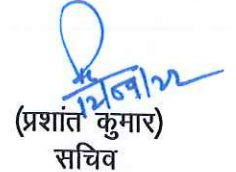 (प्रशांत कुमार)
सचिव